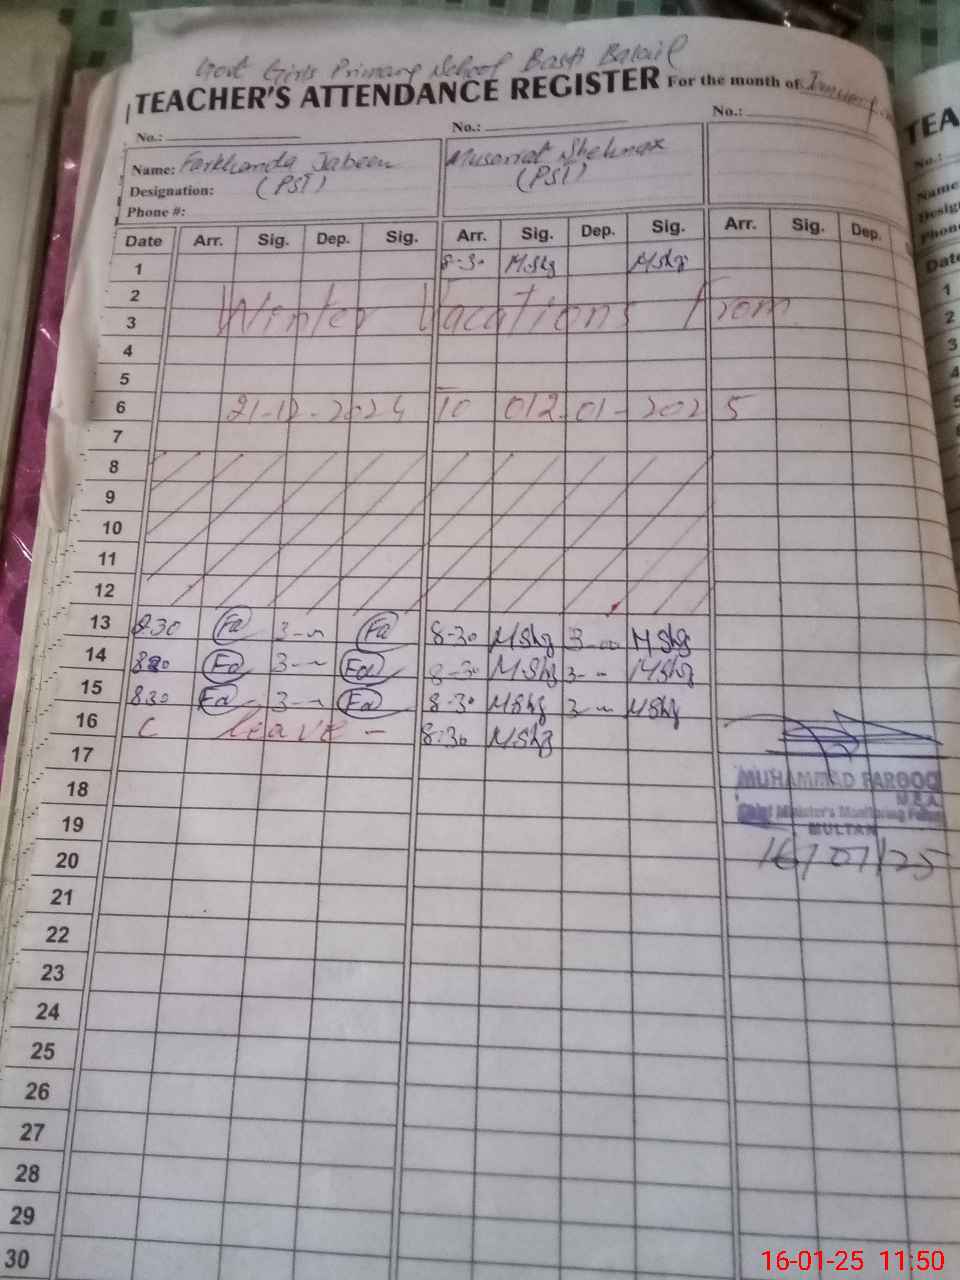 Govt Girls Primary School Basti
TEACHER'S ATTENDANCE REGISTER For the month of January
No.: No.: No.:
Name: Farkhanda Jabeen Musarrat Shehnaz
Designation: (PST) (PST)
Phone #:
Date Arr. Sig. Dep. Sig. Arr. Sig. Dep. Sig. Arr. Sig. Dep.
1 8-30 M.Shg MShg
2
3 Winter Vacations From
4
5
6 21-12-2024 To 012-01-2025
7
8
9
10
11
12
13 830 Fa 3-- Fa 8-30 MShg 3-- MShg
14 830 Fa 3-- Fa 8-30 MShg 3-- MShg
15 830 Fa 3-- Fa 8-30 MShg 3-- MShg
16 C Leave - 8:30 MShg
17
MUHAMMAD FAROOQ
18
M.E.A.
Chief Minister's Monitoring Force
19
MULTAN
20 16/01/25
21
22
23
24
25
26
27
28
29
30
TEA
No.:
Name
Desig
Phone
Date
1
2
3
4
5
16-01-25 11:50